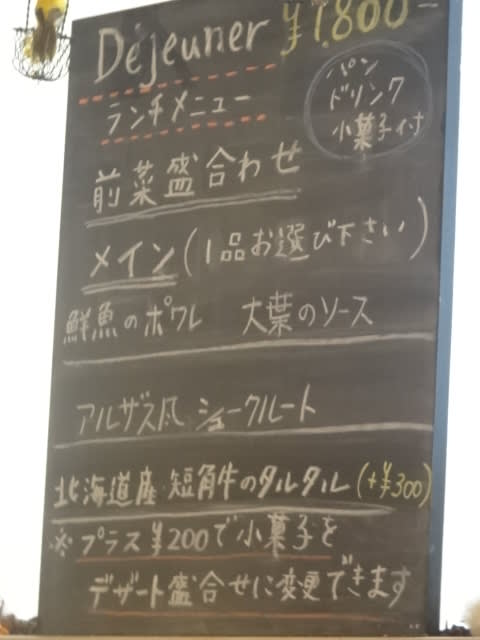 Déjeuner ¥1,800-
ランチメニュー
パン
ドリンク
小菓子付
前菜盛合わせ
メイン(1品お選び下さい)
鮮魚のポワレ 大葉のソース
アルザス風 シュークルート
北海道産 短角牛のタルタル(+¥300)
※プラス¥200で小菓子を
デザート盛合せに変更できます